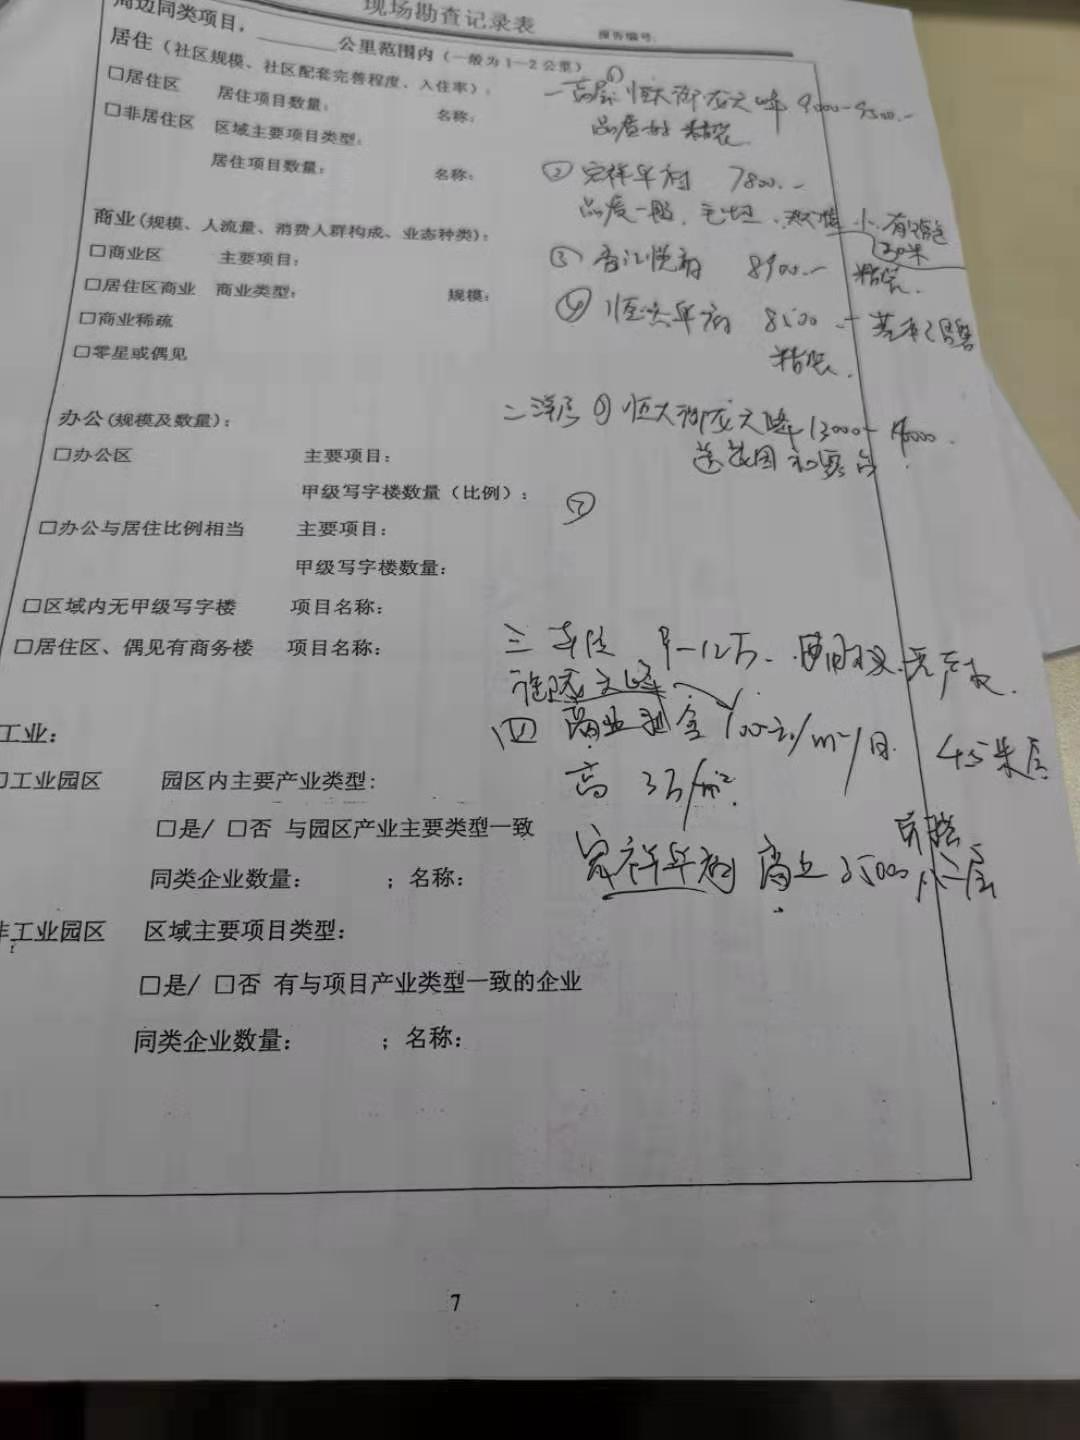 现场勘查记录表
报告编号:
周边同类项目，______公里范围内（一般为1—2公里）
居住（社区规模、社区配套完善程度、入住率）:
□居住区 居住项目数量: 名称:
□非居住区 区域主要项目类型:
居住项目数量: 名称:
商业(规模、人流量、消费人群构成、业态种类):
□商业区 主要项目:
□居住区商业 商业类型: 规模:
□商业稀疏
□零星或偶见
办公(规模及数量):
□办公区 主要项目:
甲级写字楼数量（比例）:
□办公与居住比例相当 主要项目:
甲级写字楼数量:
□区域内无甲级写字楼 项目名称:
□居住区、偶见有商务楼 项目名称:
工业:
□工业园区 园区内主要产业类型:
□是/ □否 与园区产业主要类型一致
同类企业数量: ；名称:
非工业园区 区域主要项目类型:
□是/ □否 有与项目产业类型一致的企业
同类企业数量: ；名称:
一高层 ① 恒大御龙天峰 9000-9500.-
品质好 精装
② 宏祥年府 7800.-
品质一般、毛坯、小、有
30米
③ 香江悦府 8900.- 精装.
④ 年府 8500 .- 基本已售
精装.
二洋房 ① 恒大御龙天峰 13000-
送花园和露台
②
三 车位 9-12万. 使用权、无产权.
御龙天峰
四 商业租金 元/m²/月. 4.5米层
高 3万/m².
宏祥年府 商业 25000 二层
7